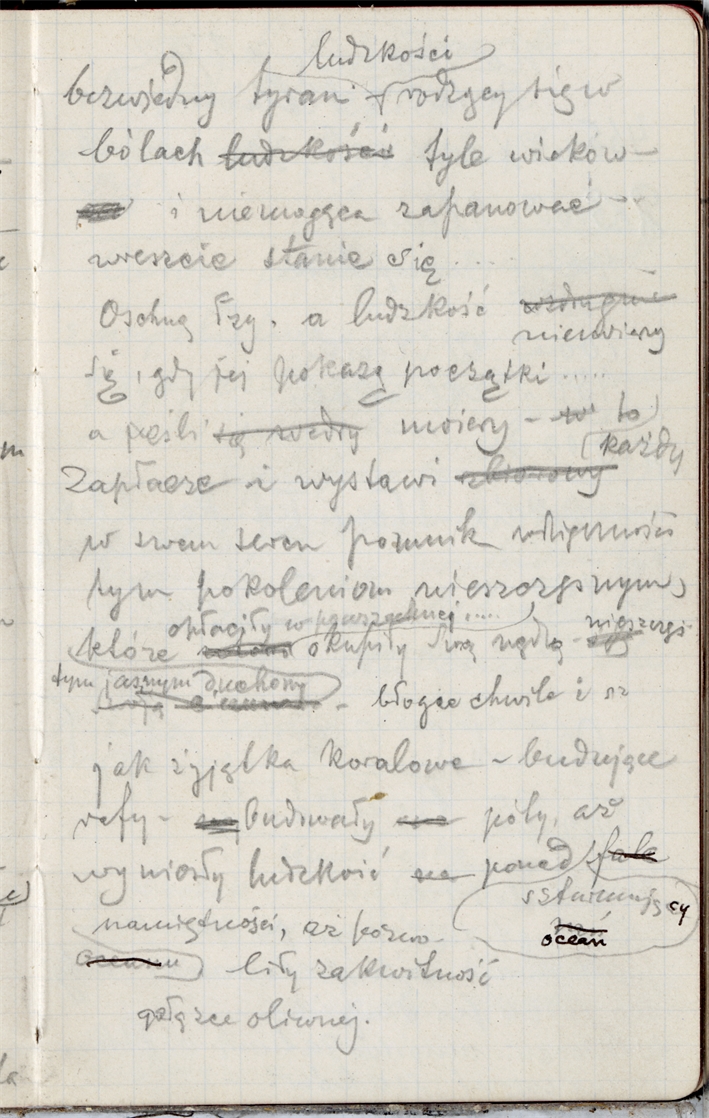 ludzkości
bezwiedny tyran rodzący się w
bólach ludzkości tyle wieków –
i niemogąca zapanować
wreszcie stanie się ....
Oschną łzy. a ludzkość
nieuwierzy
się, gdy jej pokażą początki .....
a jeśli się uwierzy – to
każdy
Zapłacze i wystawi zbiorowy
w swem sercu pomnik wdzięczności
tym pokoleniom nieszczęsnym,
opłaciły w powszechnej ....
które okupiły swą nędzą
tym jasnym duchom
błogie chwile i
jak żyjątka koralowe – budujące
rafy – budowały póty, aż
wyniosły ludzkość ponad fale
szturmujący
namiętności, aż pozwo-
ocean
liły zakwitnąć
gałązce oliwnej.